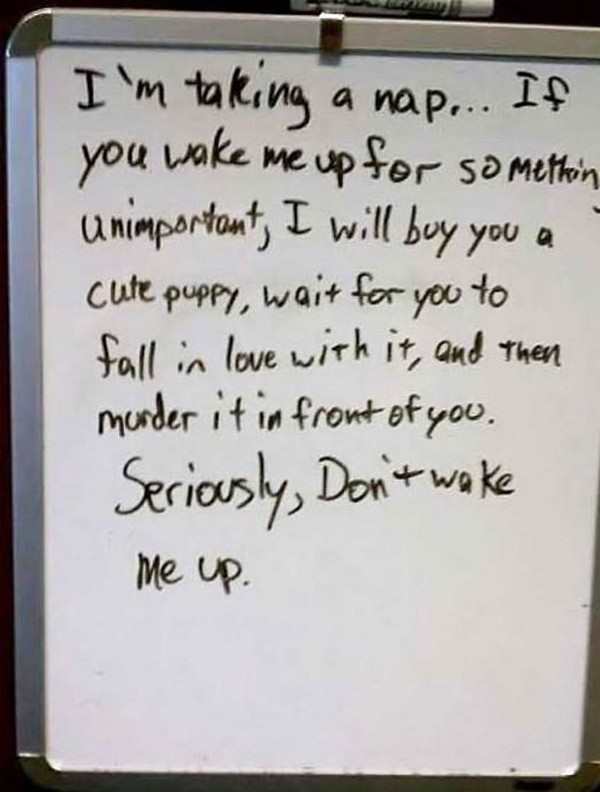 I'm taking a nap... If
you wake me up for somethin
unimportant, I will buy you a
cute puppy, wait for you to
fall in love with it, and then
murder it in front of you.
Seriously, Don't wake
me up.